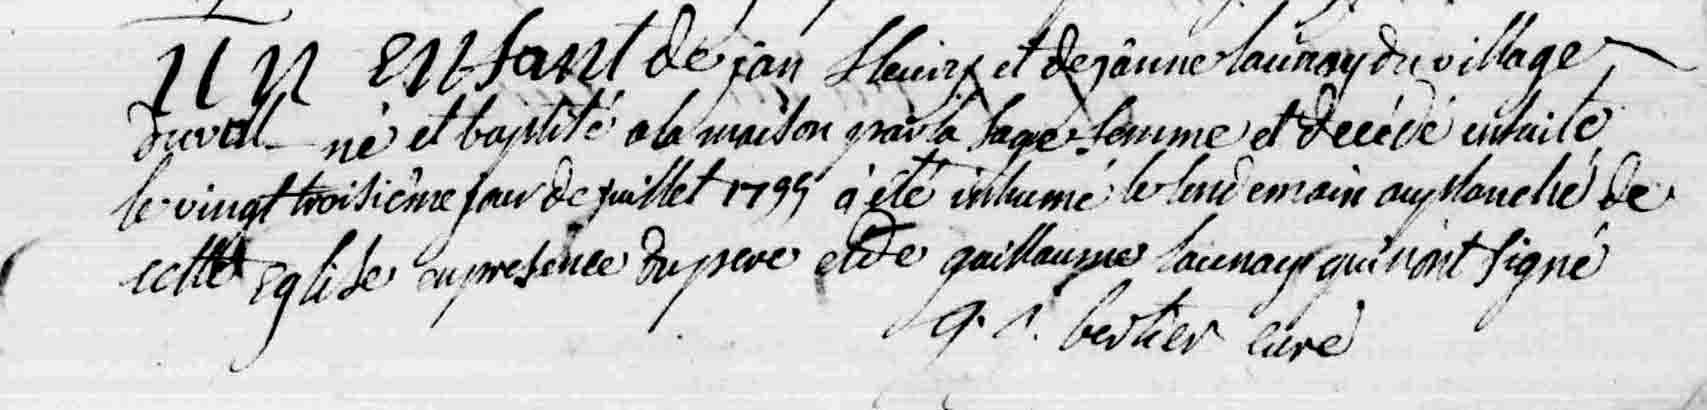 UN ENfant de jan fleury et de jânne launay du village
du val né et baptisé a la maison par la sage femme et decédé ensuite
le vingt troisième jour de juillet 1795 à été inhumé le lendemain au planché de
cette Eglise en presence du pere et de guillaume launay qui n'ont signé
bertier curé